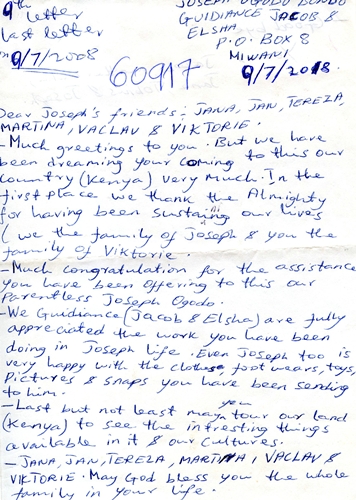 9th letter
last letter
9/7/2008
JOSEPH OGODO BONDO
GUIDIANCE JACOB &
ELSHA
P.O. BOX 8
MIWANI
9/7/2018.
60917
Dear Joseph's friends: JANA, JAN, TEREZA,
MARTINA, VACLAV & VIKTORIE.
-Much greetings to you. But we have
been dreaming your coming to this our
country (Kenya) very much. In the
first place we thank the Almighty
for having been sustaining our lives
(we the family of Joseph & you the
family of Viktorie.
-Much congratulation for the assistance
you have been offering to this our
Parentless Joseph Ogodo.
-We Guidiance (Jacob & Elsha) are fully
appreciated the work you have been
doing in Joseph life. Even Joseph too is
very happy with the clothes, foot wears, toys,
Pictures & snaps you have been sending
to him.
-Last but not least may you tour our land
(Kenya) to see the intresting things
available in it & our cultures.
-JANA, JAN, TEREZA, MARTINA, VACLAV &
VIKTORIE. May God bless you the whole
family in your life.